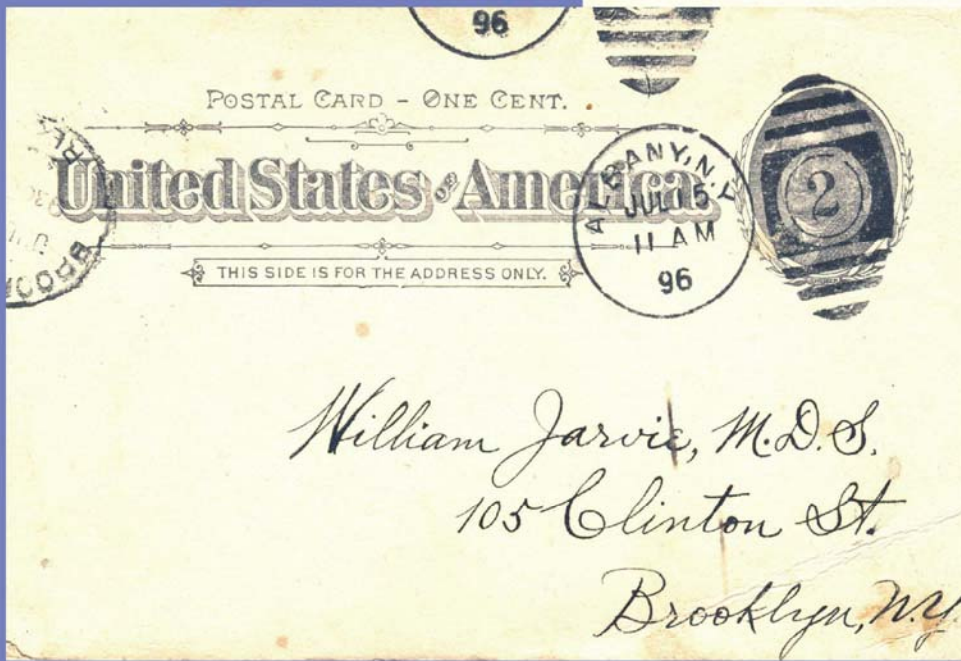 96
POSTAL CARD - ONE CENT.
United States OF America.
THIS SIDE IS FOR THE ADDRESS ONLY.
ALBANY, N.Y.
JUL 15
11 AM
96
2
William Jarvie, M.D.S.
105 Clinton St.
Brooklyn, N.Y.